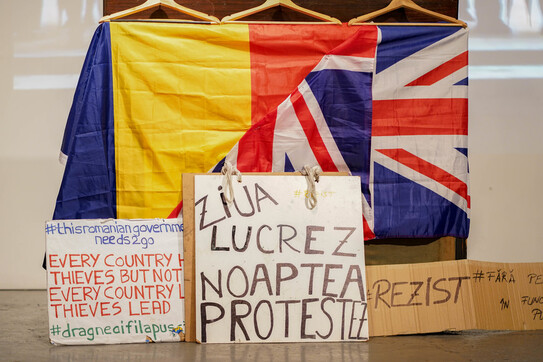 #thisromaniangovernme
needs2go
EVERY COUNTRY H
THIEVES BUT NOT
EVERY COUNTRY L
THIEVES LEAD
#dragneaifilapus
ZIUA
LUCREZ
NOAPTEA
PROTESTEZ
#REZIST
#FĂRĂ PE
IN FUNC
PU